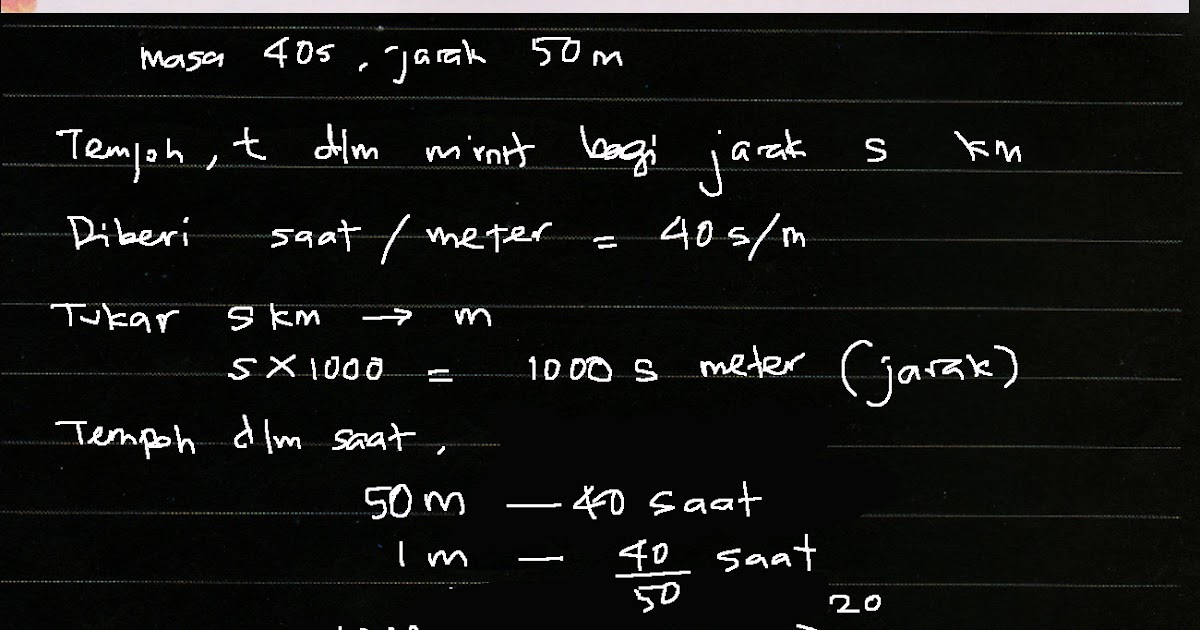 masa 40s, jarak 50 m
Tempoh, t dlm minit bagi jarak s km
Diberi saat / meter = 40 s/m
Tukar s km → m
s × 1000 = 1000 s meter (jarak)
Tempoh dlm saat,
50 m — 40 saat
1 m — 40/50 saat
20